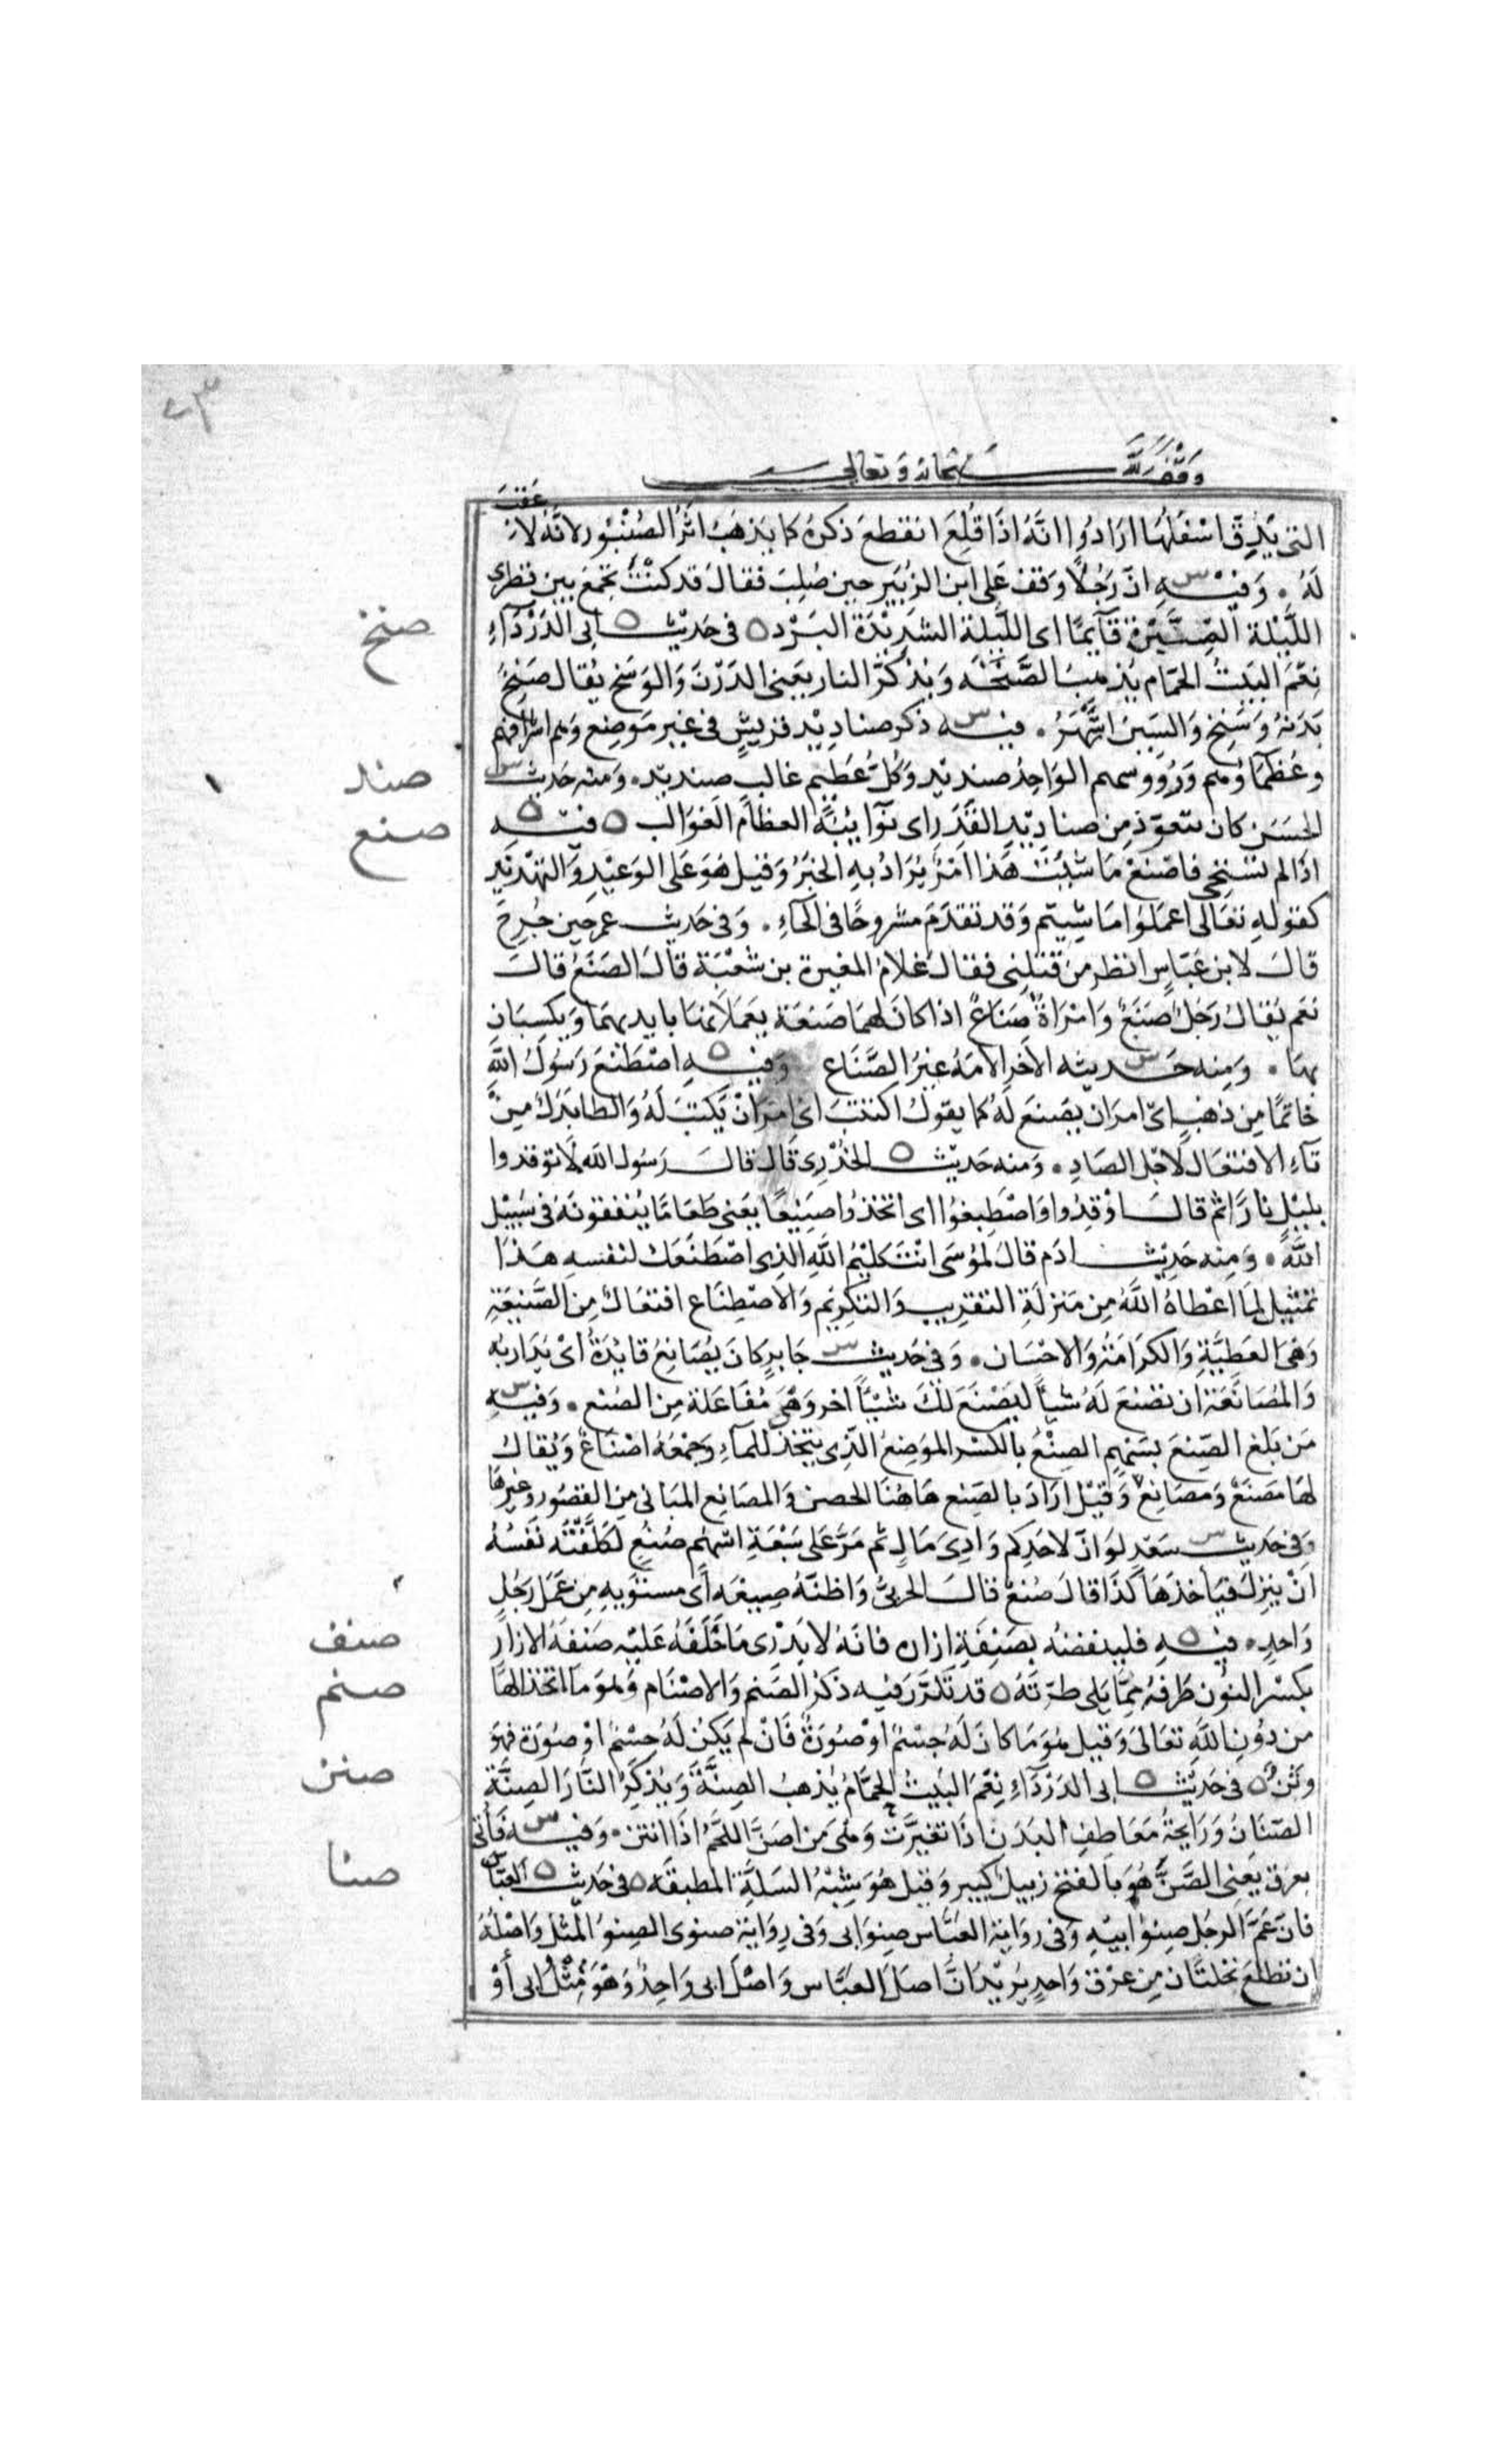 وقف لله سبحانه وتعالى
التى يدق اسفلها ارادوا انه اذا قلع انقطع ذكره كما يذهب اثر الصنبور لانه لا عقب
له . وفيه س ان رجلا وقف على ابن الزبير حين صلب فقال قد كنت تجمع بين قطرى
اللَّيْلة الصِّنَّبْرة قآيمًا اى اللَّيلة الشديدة البَرْد ه فى حديث ه ابى الدَرْدَآءِ
صنخ
نِعْمَ البَيتُ الحمّام يُذهبُ الصَّنَخَة وَيُذكرُ النار يعنى الدَرَنَ وَالوَسَخ يُقال صَنِخَ
بَدَنهُ وَسَنِخ وَالسينُ اشْهَرُ . فيه س ذكر صناديْد قريشٍ فى غير مَوضِع وَهم اشرافهم
وعُظمَاؤهم وَرُؤوسهم الوَاحِدُ صنديد وَكُل عَظيم غالبٍ صنديد . وَمنه حَديث س
صند
الحسَن كان يتعوّذ مِن صناديد القَدَر اى نَوَآئبه العظام الغَوَالب ه فيه ه
صنع
اذا لم تستحى فاصْنعْ مَا شئت هَذا امْرٌ يُرَادُ به الخبَرُ وَقيل هُوَ عَلى الوَعيْدِ وَالتهْديد
كقوله تعَالى اعمَلوُا مَا شيتم وَقد تقدَمَ مشروحًا فى الحآءِ . وَفى حَديث عمر حين جُرِحَ
قال لابن عَبّاسٍ انظر من قتلنى فقال غلامُ المغيرة بن شُعْبَة قالَ الصَنَعُ قال
نعَم يُقال رَجُلٌ صَنَعٌ وَامْرَاةٌ صَنَاعٌ اذا كانَ لهمَا صَنعَة يعمَلانها بايديهمَا وَيكسبَان
بهَا . وَمنه حَديثه س الآخر الامَةُ غيرُ الصَّنَاع وَفيْه ه اصْطَنعَ رَسُولُ اللَّه
خاتمًا مِن ذهَب اى امرَ ان يصْنعَ لهُ كما يقول اكتتبَ اى امرَ انْ يُكتبَ لهُ وَالطا بَدَلٌ مِن
تآءِ الافتعَال لاجْل الصَادِ . وَمنه حَديث ه الخُدْرِى قَال قال رَسُول الله لا توقدوا
بليْلٍ نارًا ثم قال اوْقِدُوا وَاصْطنِعُوا اى اتخذُوا صَنِيعًا يعنى طَعَامًا يُنفقونهُ فى سَبِيْل
اللَّه . وَمنه حَديث ادَم قالَ لموُسَى انْتَ كليْمُ اللَّهِ الذِى اصْطَنَعَك لنفسه هَذا
تمثيل لِمَا اعْطاهُ اللَّهُ مِن مَنزلَةِ التقريب وَالتكريم وَالاصْطِنَاع افتعَالٌ مِن الصَّنِيعَةِ
وَهىَ العَطِيَّةِ وَالكرَامَةُ وَالاحْسَان . وَفى حَديث س جَابرٍ كانَ يُصَانعُ قايدَهُ اىْ يُدَاريه
وَالمُصَانَعَة ان تصْنعَ لهُ شيأً ليصْنعَ لكَ شيْأً اخر وَهىَ مُفَاعَلة مِن الصُنع . وَفيه س
مَن بَلغ الصِنعَ بسَهمٍ الصِنعُ بالكسْر الموَضِعُ الذِى يتخذ للمآءِ وَجمعُهُ اصْنَاعٌ وَيُقالُ
لهَا مَصنَعٌ وَمَصَانع وَقيلَ ارَادَ بالصِنع هَاهُنا الحصن وَالمصَانع المبَانى مِن القصُور وغيرها
وَفى حَديث س سَعْدٍ لوَ انّ لاحَدكم وَادِىَ مَالٍ ثم مَرَّ عَلى سَبْعَةِ اسْهُم صُنُعٍ لكلَّفَتْه نَفسُهُ
انْ ينزلَ فيَأخذَهَا كذَا قالَ صُنعٌ قال الحربىُّ وَاظنهُ صِيغَه اى مستويه مِن عَمَل رَجُلٍ
وَاحِدٍ . فيه ه فلينفضهُ بصَنِفَةِ ازاره فانهُ لا يَدْرِى مَا خَلَفَهُ عَليْه صَنِفةُ الازَارِ
صنف
بكسْر النوُن طَرفهُ مِمَّا يَلى طرَّتَهُ ه قد تَكَرّرَ فيه ذكرُ الصَنم وَالاصْنَام وَهوَ مَا اتخذَ الهًا
صنم
من دوُن اللَّهِ تعَالَى وَقيل هُوَ مَا كانَ لهُ جسْمٌ اوْ صُورَةٌ فَانْ لم يَكنْ لهُ جسْمٌ اوْ صوُرَة فهوَ
وثن ه فى حَديث ه ابى الدَرْدَآءِ نِعْمَ البَيتُ الحمَّامُ يُذهبُ الصِنَّةَ وَيُذكِّرُ النَّارَ الصِنَّةُ
صنن
الصّنَانُ وَرَايحةُ مَعَاطِفِ البَدَن اذَا تغيّرَتْ وَهىَ مِن اصَنَّ اللَحْمُ اذَا انتن . وَفيه س فأتى
بعرَق يَعنى الصَّنَّ هُوَ بالفتْح زبيلٌ كبير وَقيل هُوَ شِبْهُ السَلَّةِ المطبقَه ه فى حَديث ه العَبّاس
صنا
فانَ عَمَّ الرجُل صِنوُ ابيْهِ وَفى روَايةٍ العَبَّاس صِنوُ ابى وَفى رِوَاية صنوى الصِنوُ المثلُ وَاصْلهُ
ان تطلعَ نخلتَان مِن عِرْق وَاحِدٍ يُريْدُ انَّ اصلَ العَبَّاس وَاصْلَ ابى وَاحِدٌ وَهْوَ مِثْلُ ابى أوْ